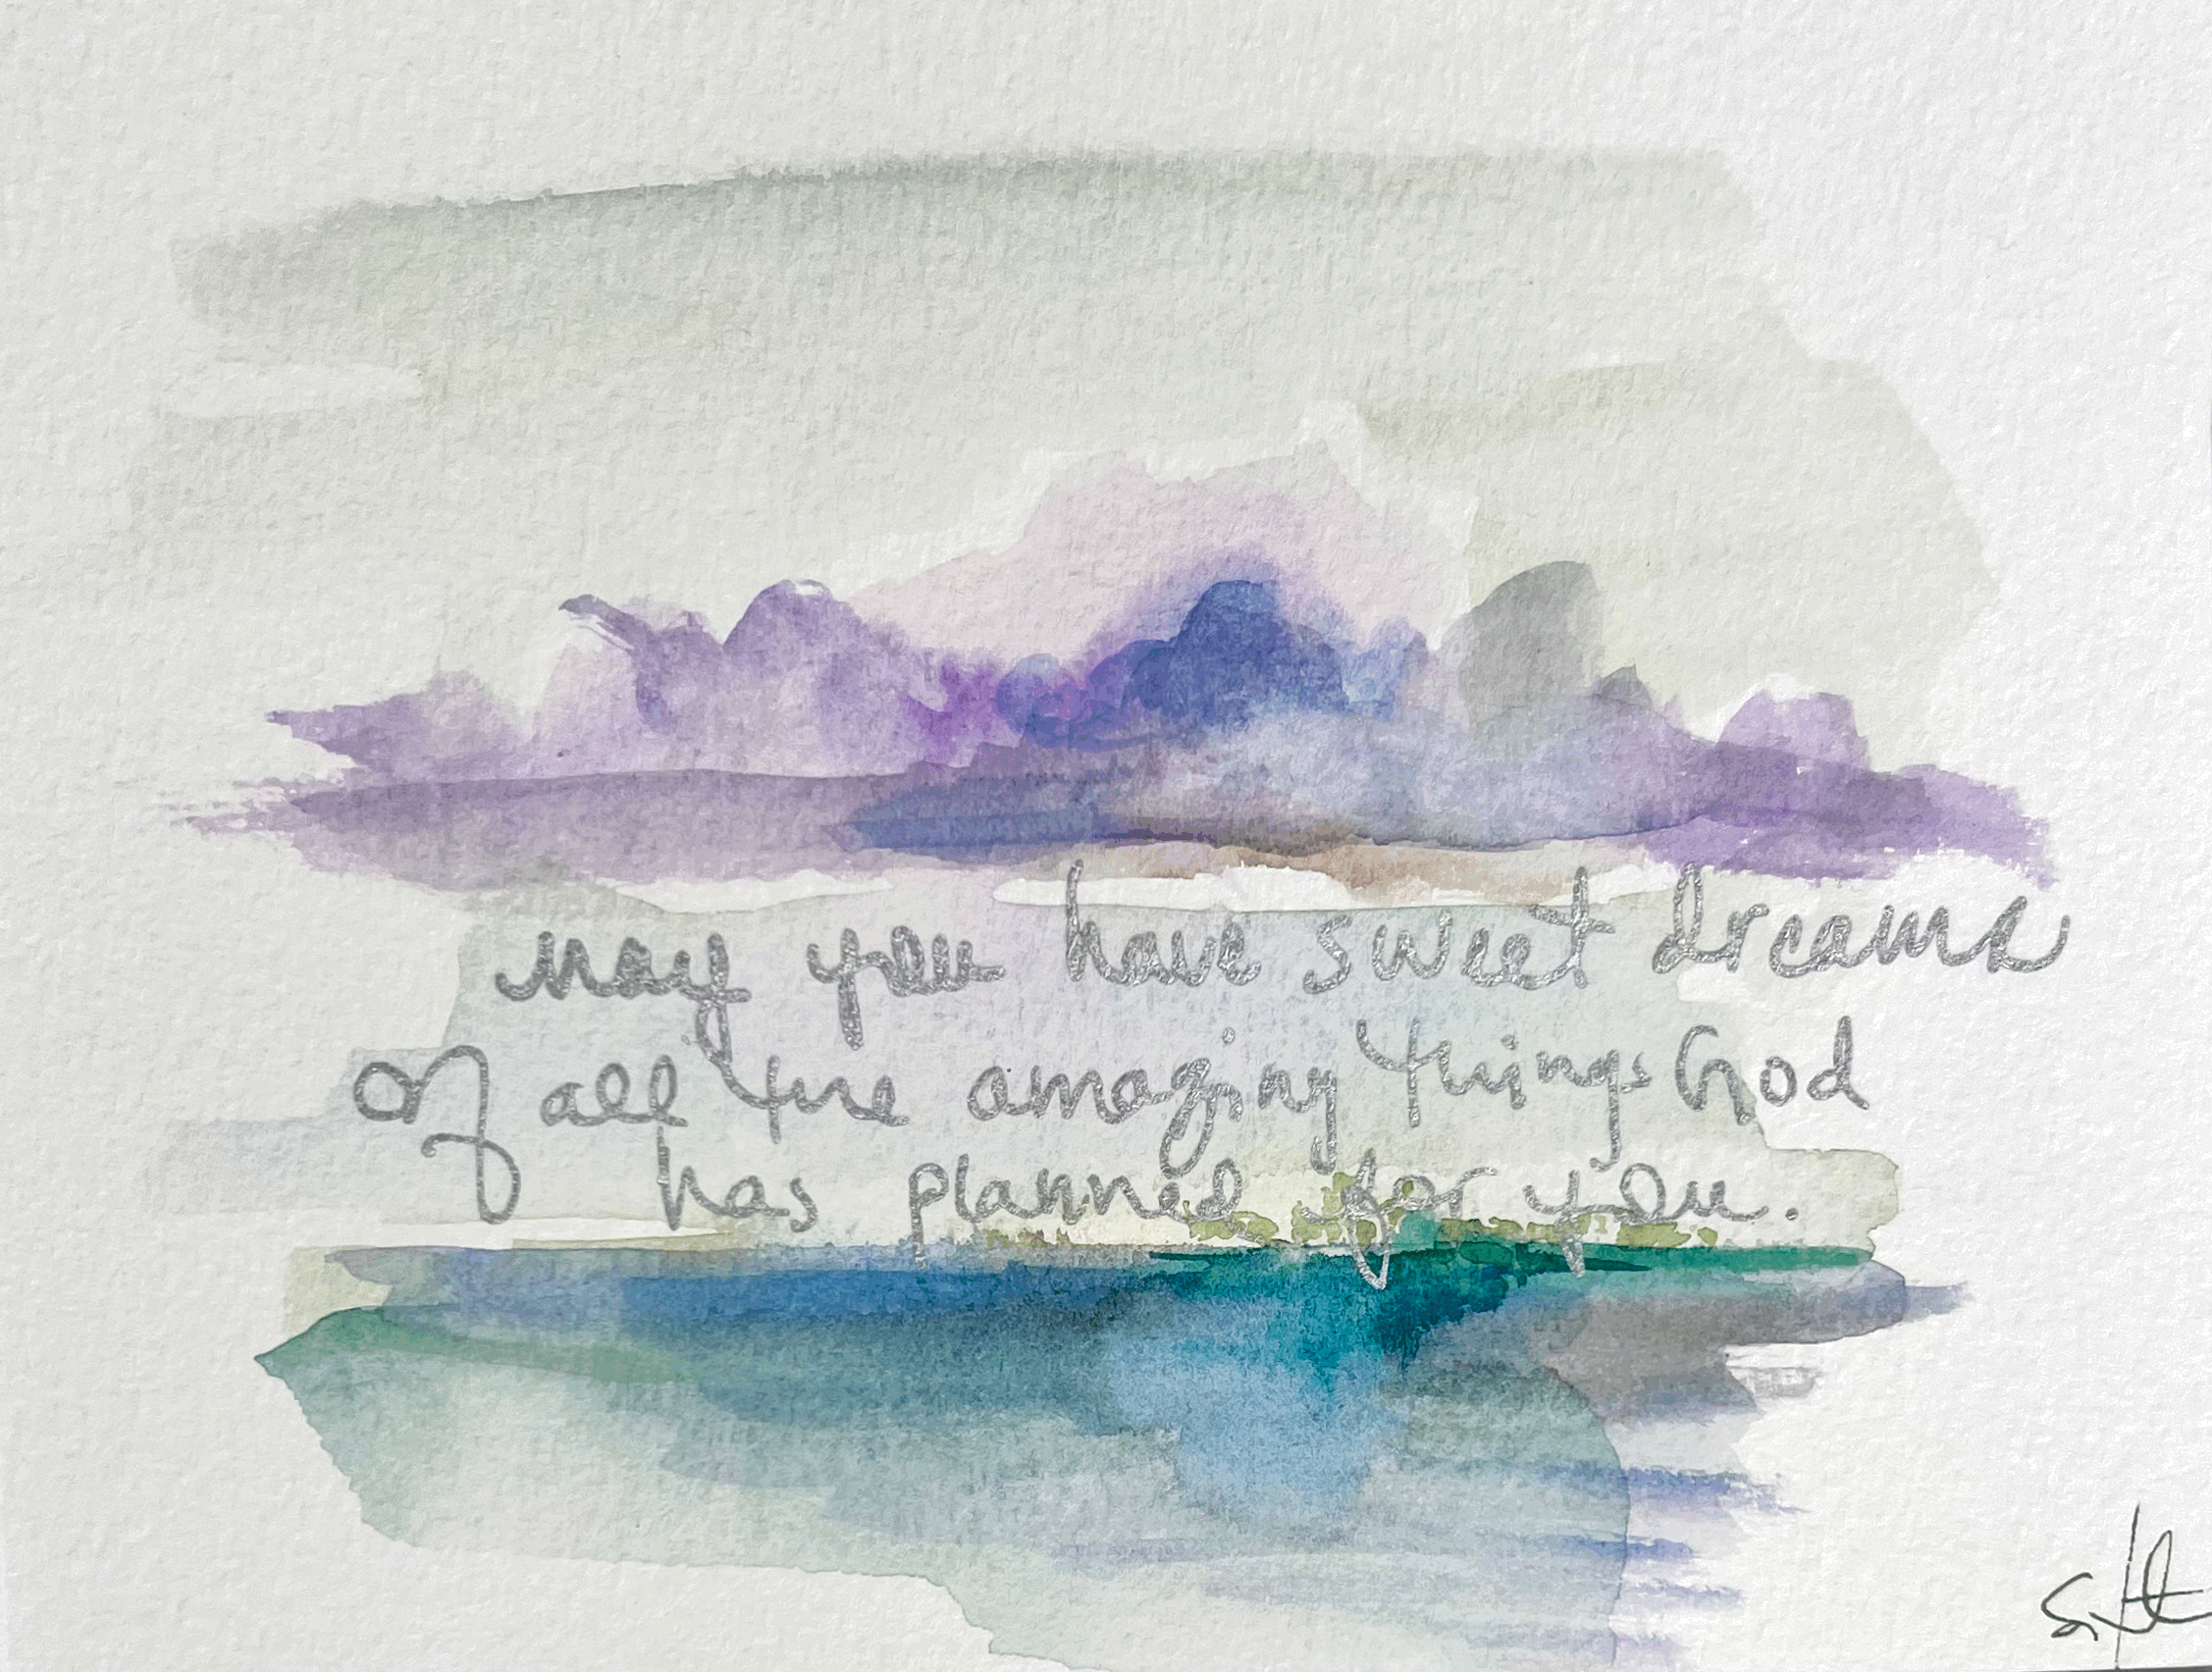 may you have sweet dreams
of all the amazing things God
has planned for you.